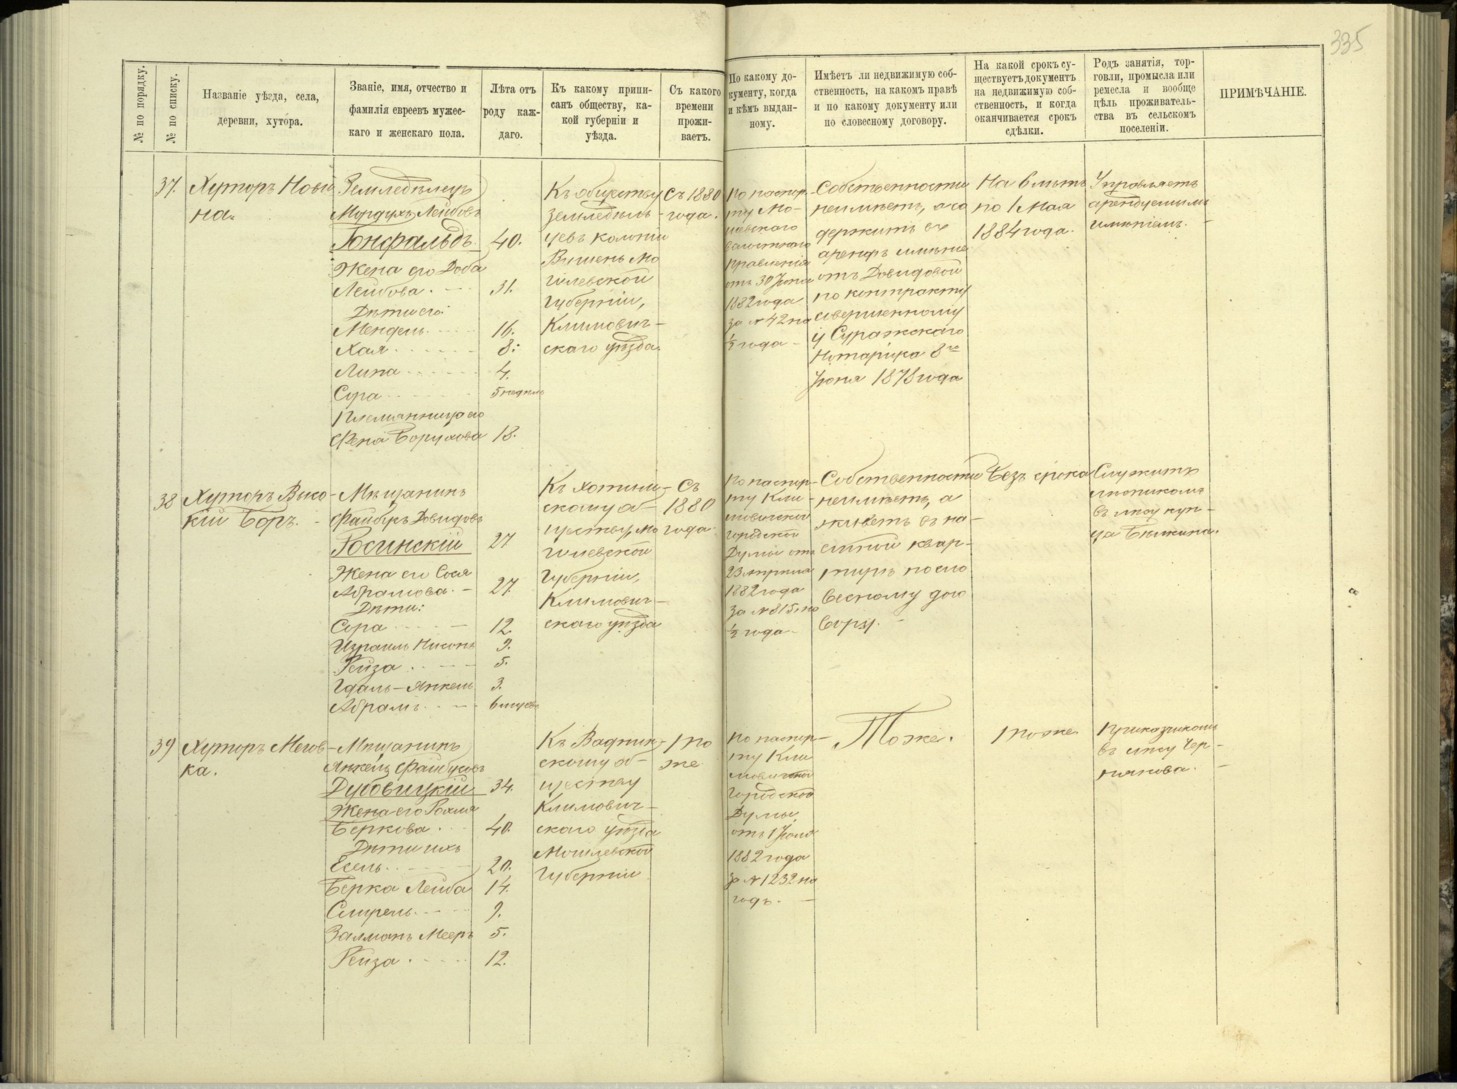 335
№ по порядку.
№ по списку.
Названіе уѣзда, села,
деревни, хутора.
Званіе, имя, отчество и
фамилія евреевъ мужес-
каго и женскаго пола.
Лѣта отъ
роду каж-
даго.
Къ какому припи-
санъ обществу, ка-
кой губерніи и
уѣзда.
Съ какого
времени
прожи-
ваетъ.
По какому до-
кументу, когда
и кѣмъ выдан-
ному.
Имѣетъ ли недвижимую соб-
ственность, на какомъ правѣ
и по какому документу или
по словесному договору.
На какой срокъ су-
ществуетъ документъ
на недвижимую соб-
ственность, и когда
оканчивается срокъ
сдѣлки.
Родъ занятія, тор-
говли, промысла или
ремесла и вообще
цѣль проживатель-
ства въ сельскомъ
поселеніи.
ПРИМѢЧАНІЕ.
37
Хуторъ Нови
на.
Земледѣлецъ
Мордухъ Лейбовъ
Гонфальдъ 40.
Жена его Доба
Лейбова. 31.
Дѣти его:
Мендель 16.
Хая 8.
Липа 4.
Сора 5 недѣль
Племянница его
Фена Борухова 18.
Къ обществу
земледѣль-
цевъ колоніи
Вишень Мо
гилевской
губерніи,
Климович-
скаго уѣзда
Съ 1880
года.
По паспор-
ту
волостного
Правленія
отъ 30 Іюня
1882 года
за № 42 на
½ года
Собственности
неимѣетъ, а со
держитъ въ
арендѣ имѣніе
отъ Давидовой
по контракту
совершенному
у Суражскаго
Нотаріуса 8го
Іюня 1878 года
На 6 лѣтъ
по 1 Мая
1884 года.
Управляетъ
арендуемымъ
имѣніемъ.
38
Хуторъ Высо-
кій Боръ.
Мѣщанинъ
Файберъ Давидовъ
Росинскій 27
Жена его Сося
Абрамова. 27
Дѣти:
Сора 12
Израиль Нисонъ 9.
Рейза 5.
Гдаль-Янкель 3.
Абрамъ 6 мѣсяц
Къ Хотим-
скому об-
ществу Мо
гилевской
губерніи,
Климович-
скаго уѣзда
Съ
1880
года
По паспор-
ту Кли-
мовичской
городской
Думы отъ
23 Апрѣля
1882 года
за № 815 на
½ года
Собственности
неимѣетъ, а
живетъ въ на-
емной квар-
тирѣ по сло
весному дого
вору.
Безъ срока
Служитъ
въ лѣсу куп-
ца
39
Хуторъ Мегов-
ка.
Мѣщанинъ
Янкель Файбусовъ
Дубовицкій 34.
Жена его Рохля
Беркова. 40.
Дѣти ихъ
Есель 20.
Берка Лейба 14.
Смерель 9.
Залманъ Мееръ 5.
Рейза 12.
Къ
скому об-
ществу
Климович-
скаго уѣзда
Могилевской
губерніи
То
же
По паспор-
ту Кли
мовичской
городской
Думы,
отъ 1 Іюля
1882 года
за № 1232 на
годъ.
Тоже.
Тоже
Прикащикомъ
въ лѣсу Чер-
никова.